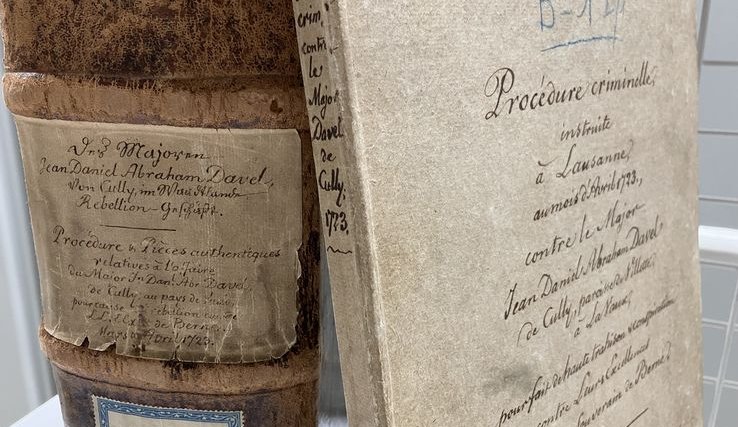 Des Majoren
Jean Daniel Abraham Davel,
von Cully, im Waadtlande
Rebellion-Geschicht.
Procédure & Pièces authentiques
relatives à l'affaire
du Major Jn Danl Abr Davel,
de Cully, au pays de Vaud,
pour cause de rébellion contre
LL. EExc. de Berne.
Mars & Avril 1723.
crim.
contre
le
Major
Davel
de
Cully.
1723.
Procédure criminelle,
instruite
à Lausanne,
au mois d'Avril 1723,
contre le Major
Jean Daniel Abraham Davel
de Cully, paroisse de Villette,
à La Vaux,
pour fait de haute trahison & conspiration
contre Leurs Excellences
Souverain de Berne.